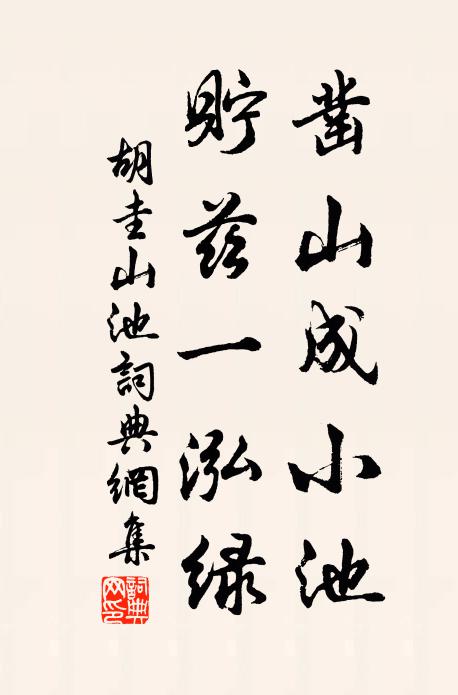 凿山成小池
贮兹一泓绿
胡圭山池詞典網集
詞典网印